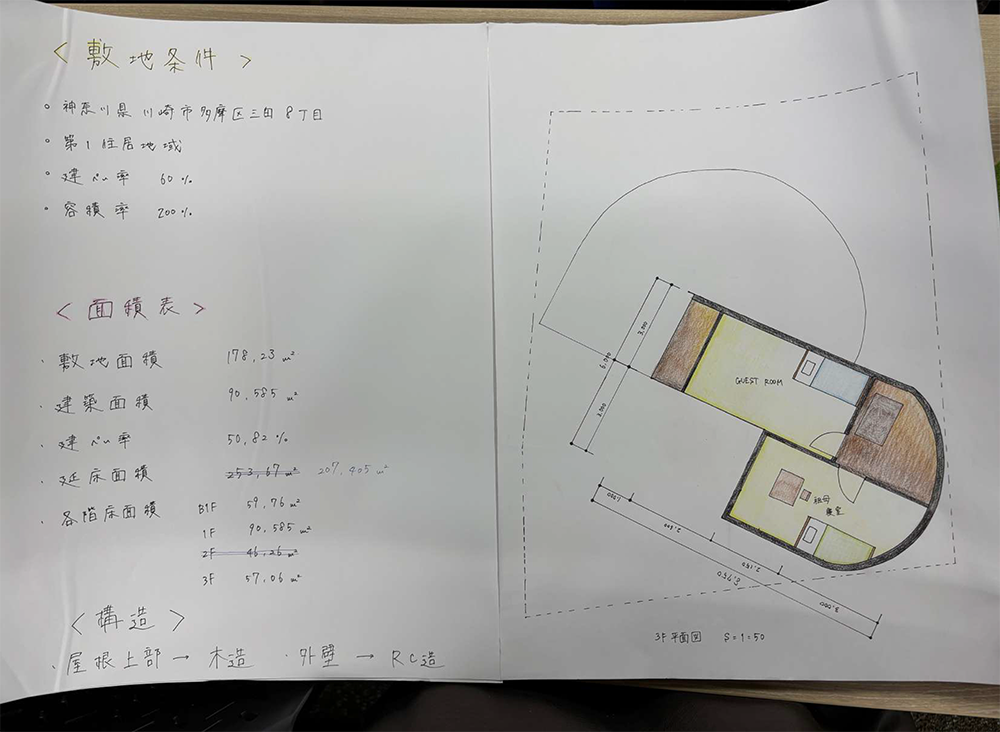 <敷地条件>
。神奈川県 川崎市多摩区三田 8丁目
。第1住居地域
。建ぺい率 60%
。容積率 200%
<面積表>
・敷地面積 178.23㎡
・建築面積 90.585㎡
・建ぺい率 50.82%
・延床面積 253.67㎡ 207.405㎡
・各階床面積 B1F 59.76㎡
1F 90.585㎡
2F 46.26㎡
3F 57.06㎡
<構造>
・屋根上部→木造 ・外壁→RC造
3,000
6,000
3,000
GUEST ROOM
祖母
寝室
3,000
3F平面図 S=1:50